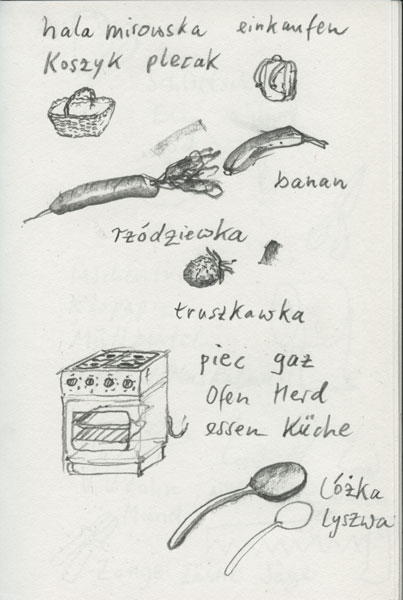 hala mirowska einkaufen
Koszyk plecak
banan
rzódziewka
truszkawka
piec gaz
Ofen Herd
essen Küche
Lóżka
Lyszwa